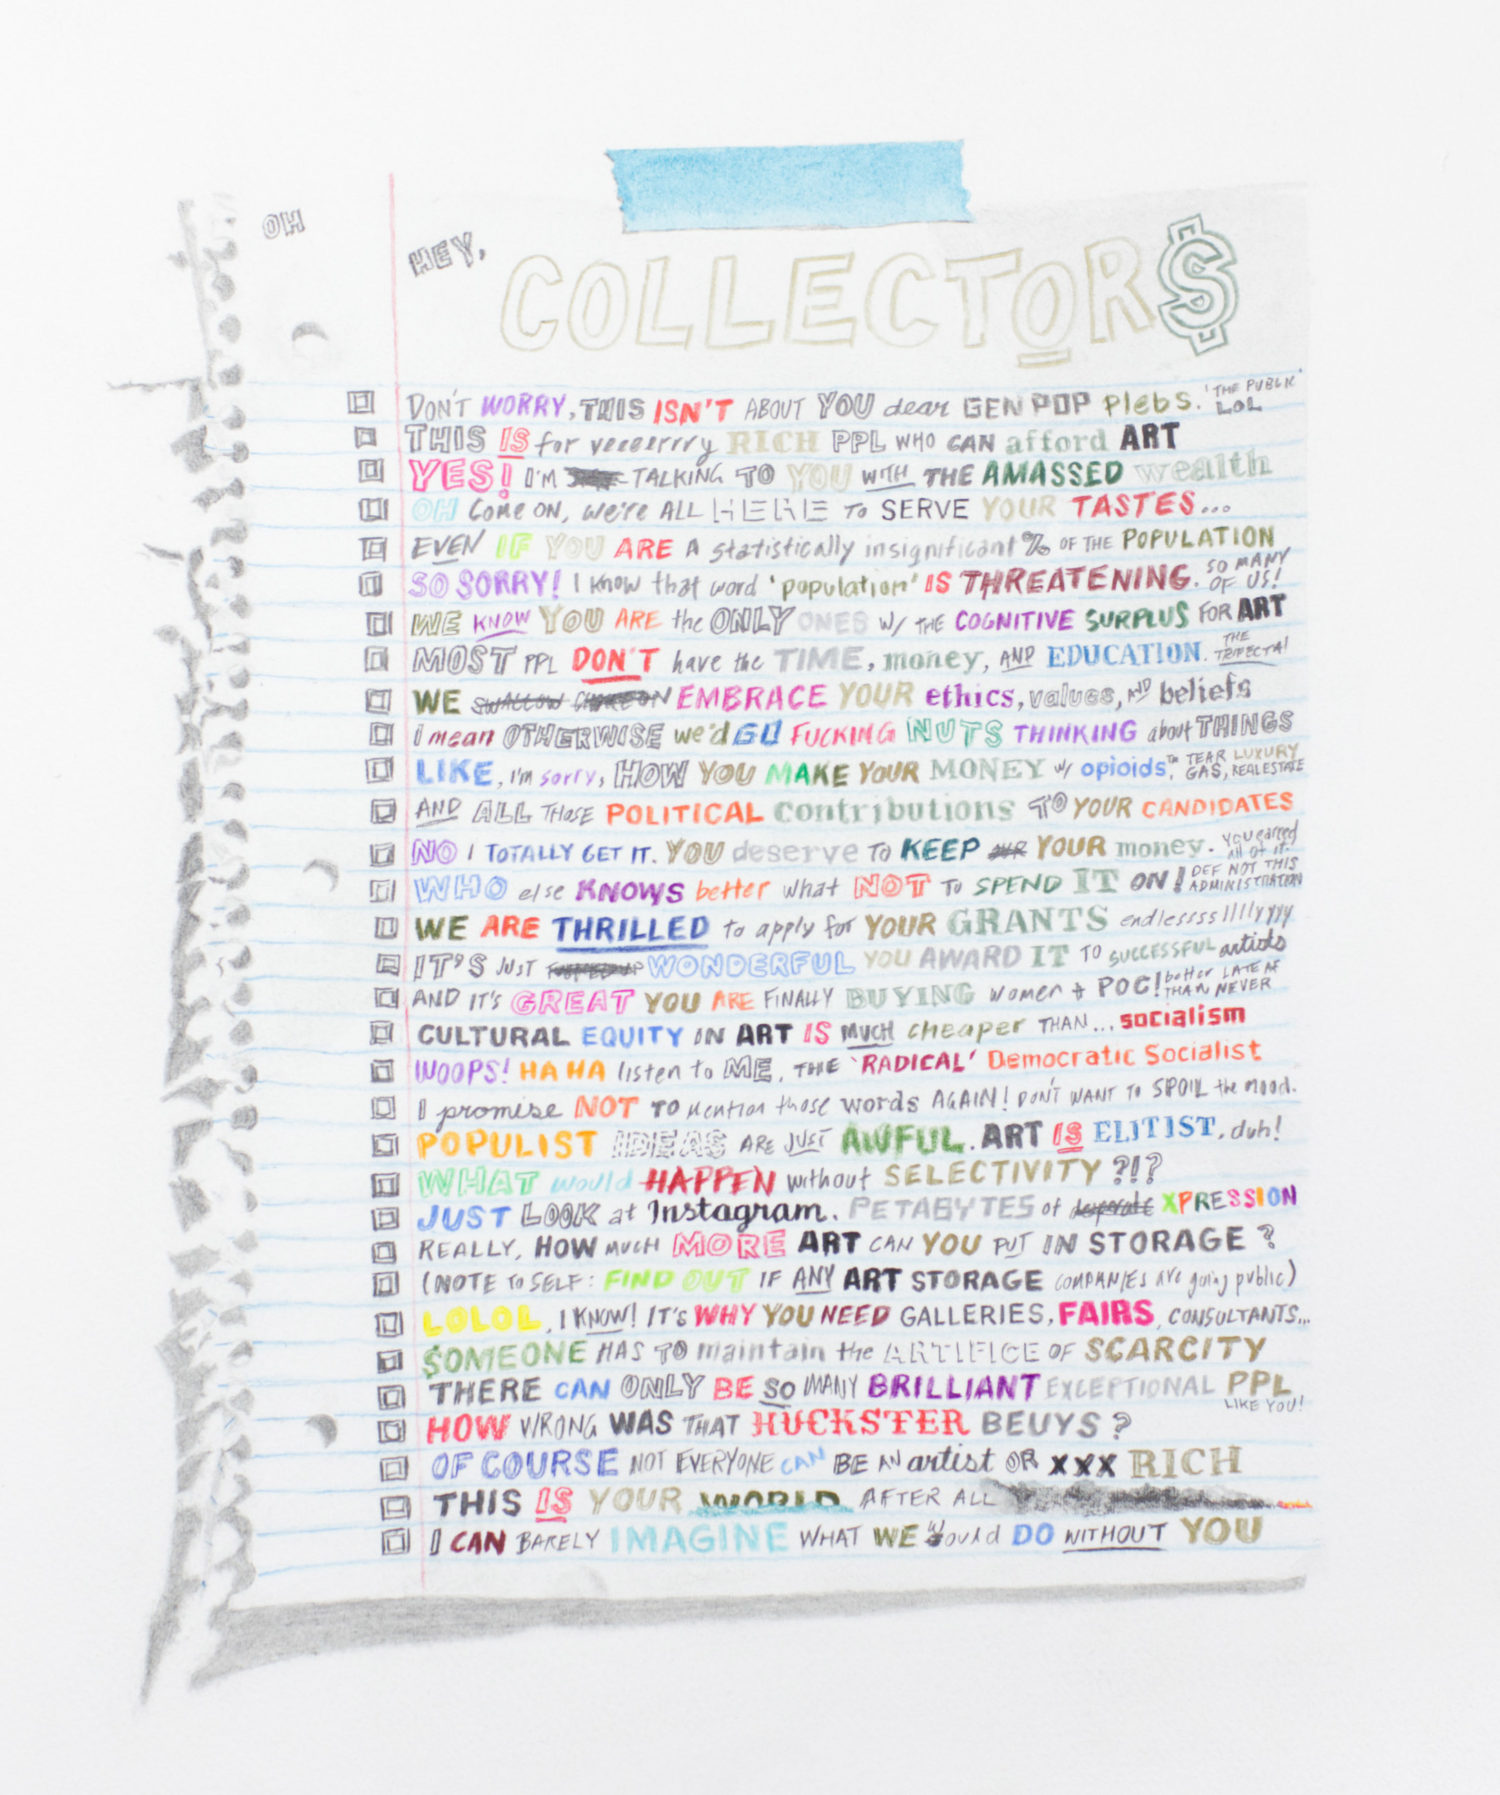 OH
HEY, COLLECTOR$
DON'T WORRY, THIS ISN'T ABOUT YOU dear GEN POP plebs. 'THE PUBLIC' LOL
THIS IS for veeeerrry RICH PPL WHO CAN afford ART
YES! I'M TALKING TO YOU WITH THE AMASSED wealth
OH COME ON, we're ALL HERE TO SERVE YOUR TASTES...
EVEN IF YOU ARE A statistically insignificant % OF THE POPULATION
SO SORRY! I know that word 'population' IS THREATENING. SO MANY OF US!
WE KNOW YOU ARE the ONLY ONES W/ THE COGNITIVE SURPLUS FOR ART
MOST PPL DON'T have the TIME, money, AND EDUCATION. THE TRIFECTA!
WE SWALLOW CHOKE ON EMBRACE YOUR ethics, values, AND beliefs
I mean OTHERWISE we'd GO FUCKING NUTS THINKING about THINGS
LIKE, I'm sorry, HOW YOU MAKE YOUR MONEY w/ opioids™, TEAR GAS, LUXURY REAL ESTATE
AND ALL THOSE POLITICAL contributions TO YOUR CANDIDATES
NO I TOTALLY GET IT. YOU deserve TO KEEP OUR YOUR money. you earned all of it.
WHO else KNOWS better what NOT TO SPEND IT ON! DEF NOT THIS ADMINISTRATION
WE ARE THRILLED to apply for YOUR GRANTS endlessssllllyyyy
IT'S JUST WONDERFUL YOU AWARD IT TO SUCCESSFUL artists
AND IT'S GREAT YOU ARE FINALLY BUYING women + POC! better LATE AF THAN NEVER
CULTURAL EQUITY IN ART IS MUCH cheaper THAN... socialism
WOOPS! HA HA listen to ME, THE 'RADICAL' Democratic Socialist
I promise NOT TO mention those words AGAIN! DON'T WANT TO SPOIL the mood.
POPULIST IDEAS ARE JUST AWFUL. ART IS ELITIST, duh!
WHAT would HAPPEN without SELECTIVITY ?!?
JUST LOOK at Instagram. PETABYTES of desperate XPRESSION
REALLY, HOW MUCH MORE ART CAN YOU PUT IN STORAGE ?
(NOTE TO SELF: FIND OUT IF ANY ART STORAGE COMPANIES are going public)
LOLOL, I KNOW! IT'S WHY YOU NEED GALLERIES, FAIRS, CONSULTANTS...
$OMEONE HAS TO maintain the ARTIFICE OF SCARCITY
THERE CAN ONLY BE SO MANY BRILLIANT EXCEPTIONAL PPL LIKE YOU!
HOW WRONG WAS THAT HUCKSTER BEUYS ?
OF COURSE NOT EVERYONE CAN BE AN artist OR XXX RICH
THIS IS YOUR WORLD AFTER ALL
I CAN BARELY IMAGINE WHAT WE would DO WITHOUT YOU